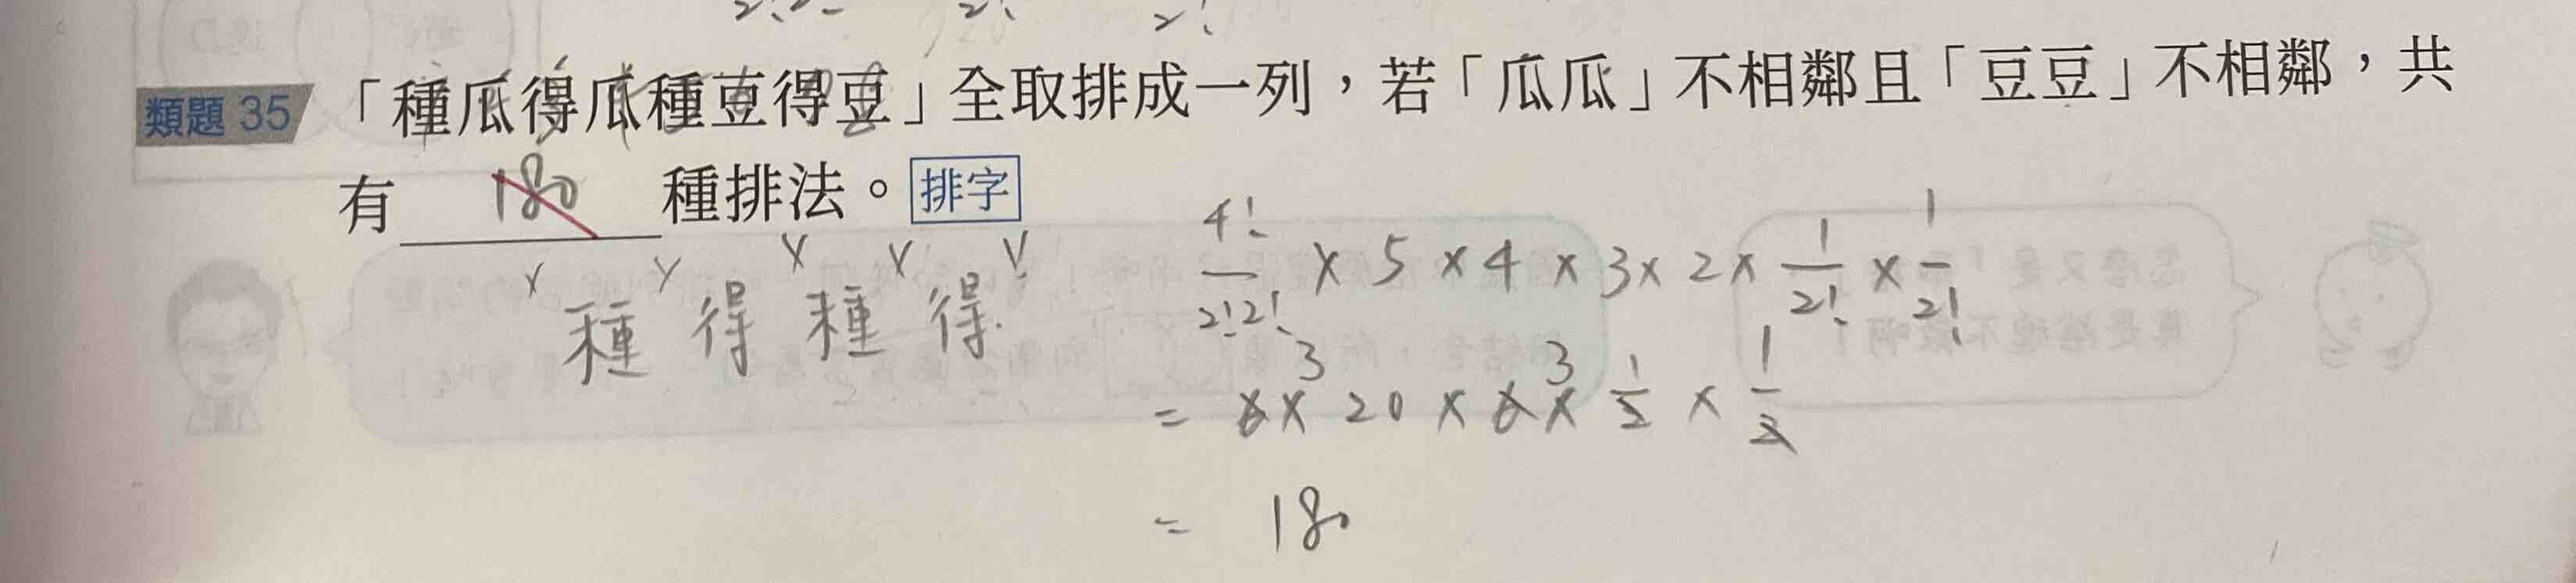 類題 35 「種瓜得瓜種豆得豆」全取排成一列，若「瓜瓜」不相鄰且「豆豆」不相鄰，共
有 180 種排法。 排字
種 得 種 得
4!/2!2! × 5 × 4 × 3 × 2 × 1/2! × 1/2!
= 6 × 20 × 6 × 1/2 × 1/2
= 180